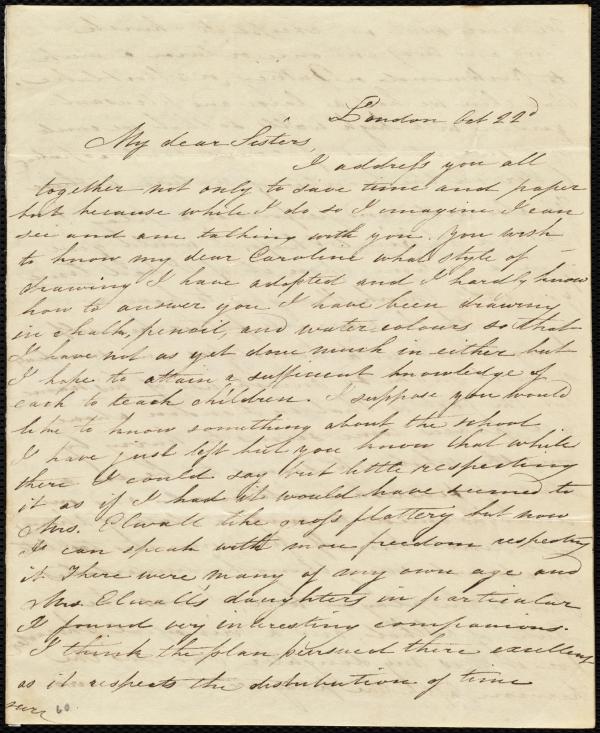 London Oct 22d
My dear Sisters,
I address you all
together not only to save time and paper
but because while I do so I imagine I can
see and am talking with you. You wish
to know my dear Caroline what style of
drawing I have adopted and I hardly know
how to answer you I have been drawing
in chalk, pencil, and water colours so that
I have not as yet done much in either but
I hope to attain a sufficient knowledge of
each to teach children. I suppose you would
like to know something about the school
I have just left but you know that while
there I could say but little respecting
it as if I had it would have seemed to
Mrs. Elwall like gross flattery but now
I can speak with more freedom respecting
it. There were many of my own age and
Mrs. Elwall's daughters in particular
I found very interesting companions.
I think the plan persued there excellent
as it respects the distribution of time
60